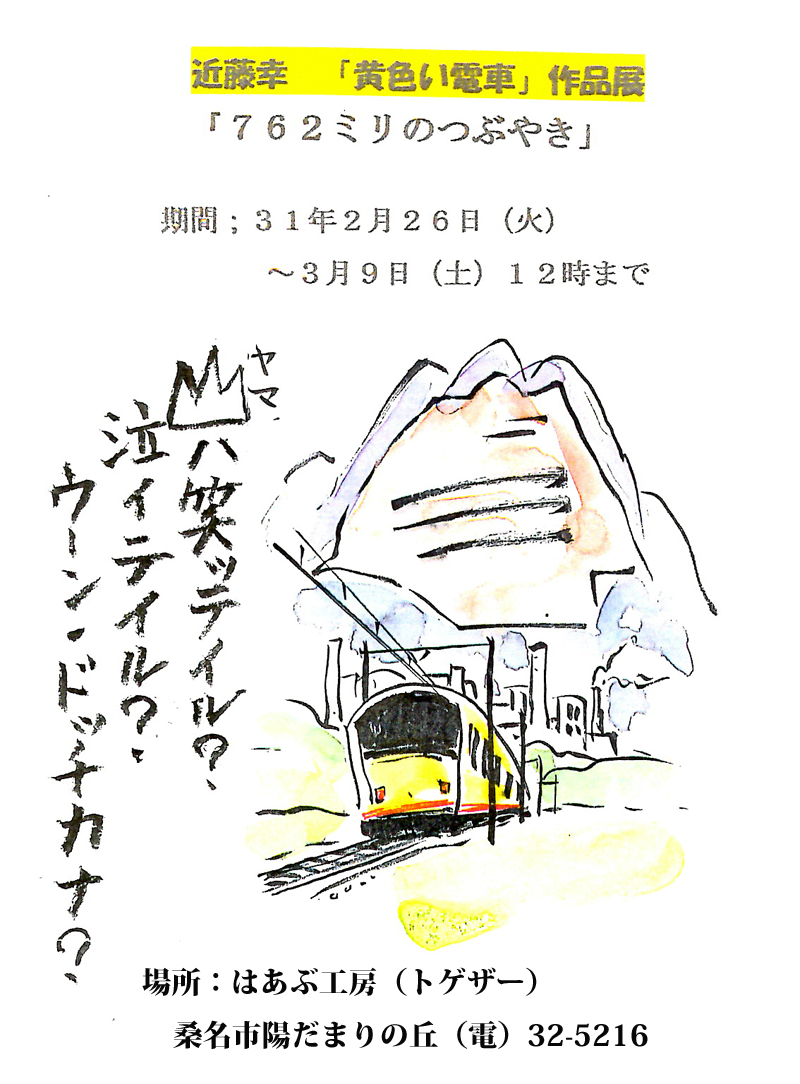 近藤幸　「黄色い電車」作品展
「７６２ミリのつぶやき」
期間；３１年２月２６日（火）
～３月９日（土）１２時まで
ヤマ
山ハ笑ッテイル？
泣イテイル？
ウーン・ドッチカナ？
場所：はあぶ工房（トゲザー）
桑名市陽だまりの丘（電）32-5216